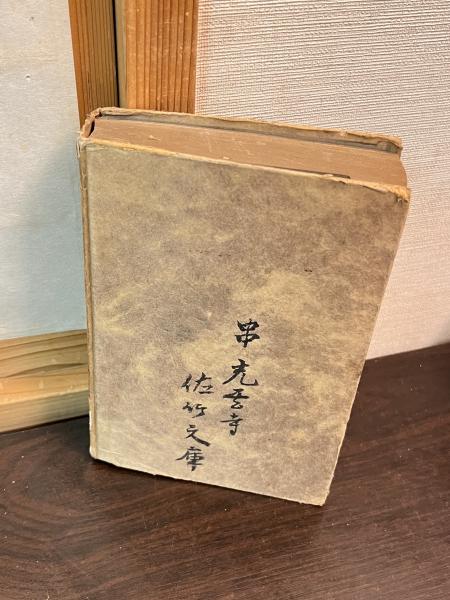 串 光寺
佐竹文庫